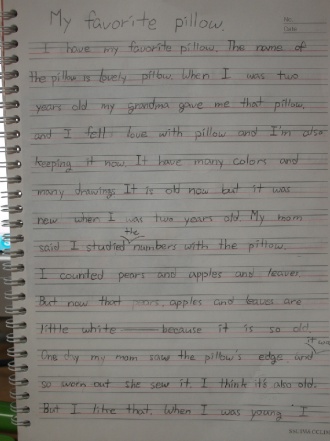 My favorite pillow.
No.
Date
I have my favorite pillow. The name of
the pillow is lovely pillow. When I was two
years old my grandma gave me that pillow,
and I fell love with pillow and I'm also
keeping it now. It have many colors and
many drawings It is old now but it was
new when I was two years old. My mom
the
said I studied numbers with the pillow.
I counted pears and apples and leaves
But now that pears, apples and leaves are
little white because it is so old.
One day my mom saw the pillow's edge and
it was
so worn out she sew it. I think it's also old.
But I like that. When I was young I